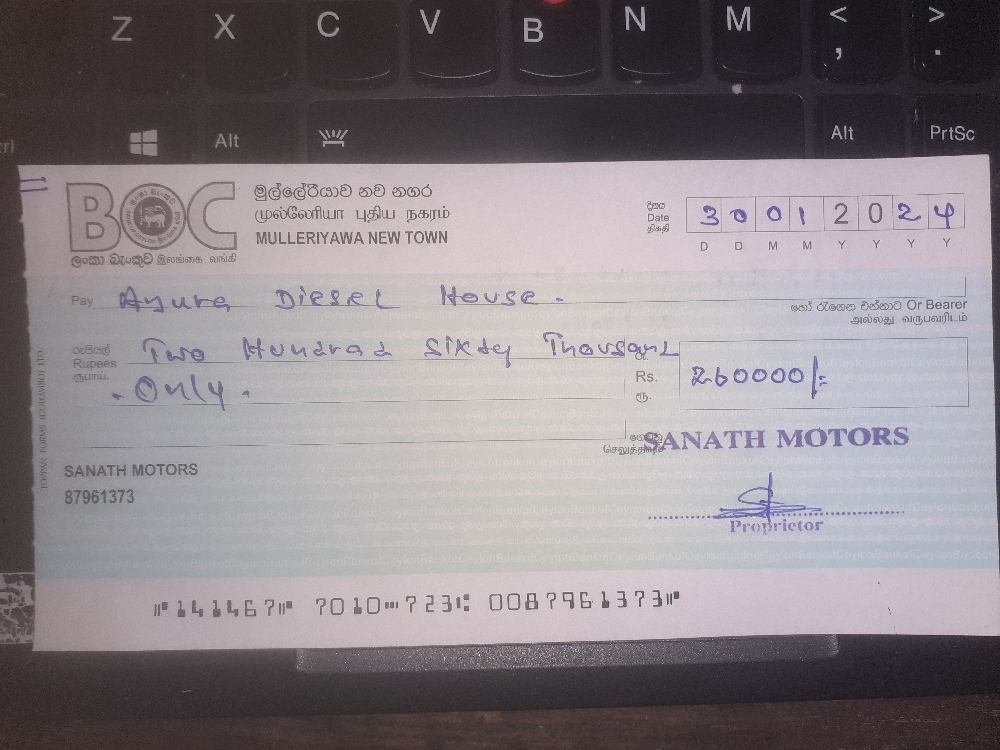 Z X C V B N M < , > .
Alt Alt PrtSc
BOC
ලංකා බැංකුව இலங்கை வங்கி
මුල්ලේරියාව නව නගර
முல்லேரியா புதிய நகரம்
MULLERIYAWA NEW TOWN
දිනය
Date
திகதி
3 0 0 1 2 0 2 4
D D M M Y Y Y Y
Pay Ayura Diesel House.
හෝ රැගෙන එන්නාට Or Bearer
அல்லது வருபவரிடம்
රුපියල්
Rupees
ரூபாய்
Two Hundrad Sixty Thousand
- Only.
රු.
Rs.
ரூ.
260000/=
SANATH MOTORS
SANATH MOTORS
87961373
Proprietor
141467 7010 723 0087961373